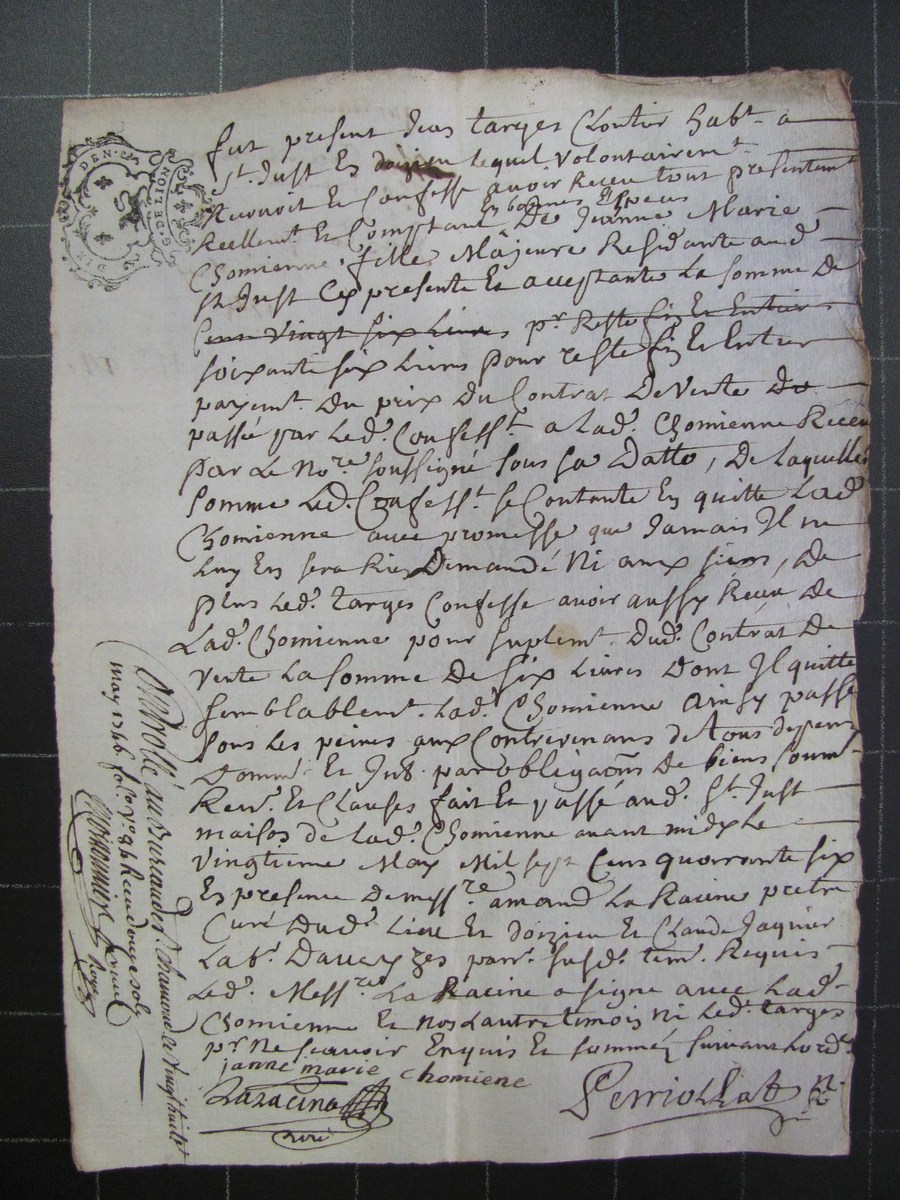 GNDELION
DEN
fut present Jean targes Cloutier habt. a
St. Just En doizieu lequel volontairemt.
reconoit Et Confesse avoir Receu tout presentemt
Reellemt. Et Comptant En bonnes Especes De Jeanne Marie
Chomienne fille Majeure Residante aud
St Just Cy presente Et acceptante La somme De
Cent Vingt six Livres pr. Reste fin Et Entier
soixante six Livres pour reste fin Et Entier
payemt. Du prix Du Contrat De Vente De
passé par Led. Confesst. a Lad. Chomienne Receu
par Le Nore. soussigné sous sa Datte, De Laquelle
somme Led. Confesst. se Contante En quitte Lad
Chomienne avec promesse que Jamais Il ne
Luy En sera Rien Demandé Ni aux siens, De
plus Led. targes Confesse avoir aussy Receu De
Lad. Chomienne pour suplemt. Dud. Contrat De
Vente La somme De six Livres Dont Il quitte
semblablemt. Lad. Chomienne Ainsy passé
sous Les peines aux Contrevenans de tous depens
Domm. Et Int. par obligaons De biens soum.
Renon. Et Clauses fait Et passé aud. St. Just
maison de Lad. Chomienne avant midy Le
Vingtieme May Mil sept Cens quarante six
En presence De messre amand La Racine pretre
Curé Dud. Lieu Et doizieu Et Claude Jaquier
Labr. Daveyzes parr. susd. tem. Requis
Led. Messre La Racine a signé avec Lad.
Chomienne Et non Lautre temoin Ni Led. targes
pr Ne scavoir Enquis Et sommés suivant Lord.
janne marie chomiene
Laracine
curé
Perriollat
Controllé au bureau de St. Chaumond Le Vingt huit
May 1746 fo.
Receu douze sols